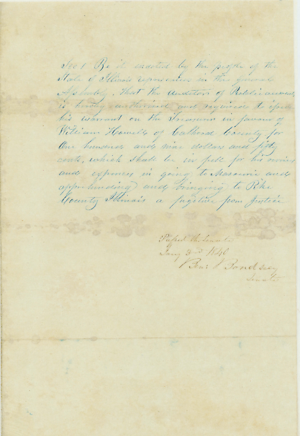 Sec 1 Be it enacted by the people of the
State of Illinois represented in the general
Assembly That the auditor of Public accounts
is hereby authorized and required to
his warrant on the Treasurer in favour of
William Hamilt of County for
One hundred and nine dollars and fifty
cents, which shall be in full for his services
and expenses in going to Missouri and
apprehending and bringing to Pike
County Illinois a fugitive from Justice
Passed the Senate
Jany 1840